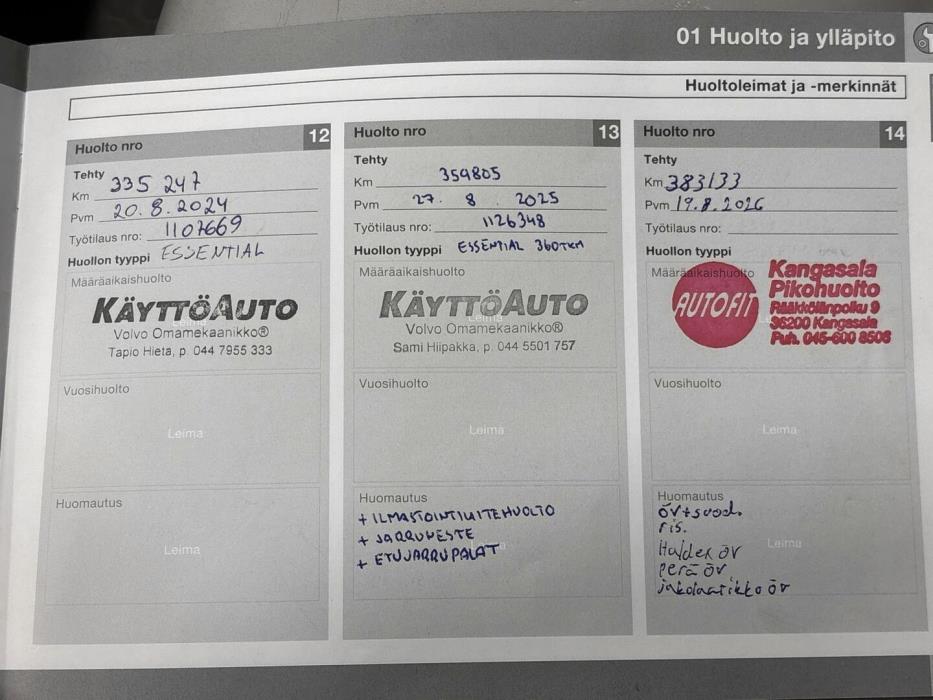 01 Huolto ja ylläpito
Huoltoleimat ja -merkinnät
Huolto nro 12
Tehty
Km 335 247
Pvm 20.8.2024
Työtilaus nro: 1107669
Huollon tyyppi ESSENTIAL
Määräaikaishuolto
KÄYTTÖAUTO
Volvo Omamekaanikko®
Tapio Hieta, p. 044 7955 333
Vuosihuolto
Leima
Huomautus
Leima
Huolto nro 13
Tehty
Km 359805
Pvm 27. 8. 2025
Työtilaus nro: 1126348
Huollon tyyppi ESSENTIAL 360TKM
Määräaikaishuolto
KÄYTTÖAUTO
Leima
Volvo Omamekaanikko®
Sami Hiipakka, p. 044 5501 757
Vuosihuolto
Leima
Huomautus
+ ILMASTOINTILAITEHUOLTO
+ JARRUNESTE
+ ETUJARRUPALAT
Huolto nro 14
Tehty
Km 383133
Pvm 19.8.2026
Työtilaus nro:
Huollon tyyppi
Määräaikaishuolto
AUTOFIT
Kangasala
Pikohuolto
Rääkkölänpolku 9
36200 Kangasala
Puh. 045-600 8506
Vuosihuolto
Leima
Huomautus
öv+suod.
ris.
Leima
Haldex öv
perä öv
jakolaatikko öv